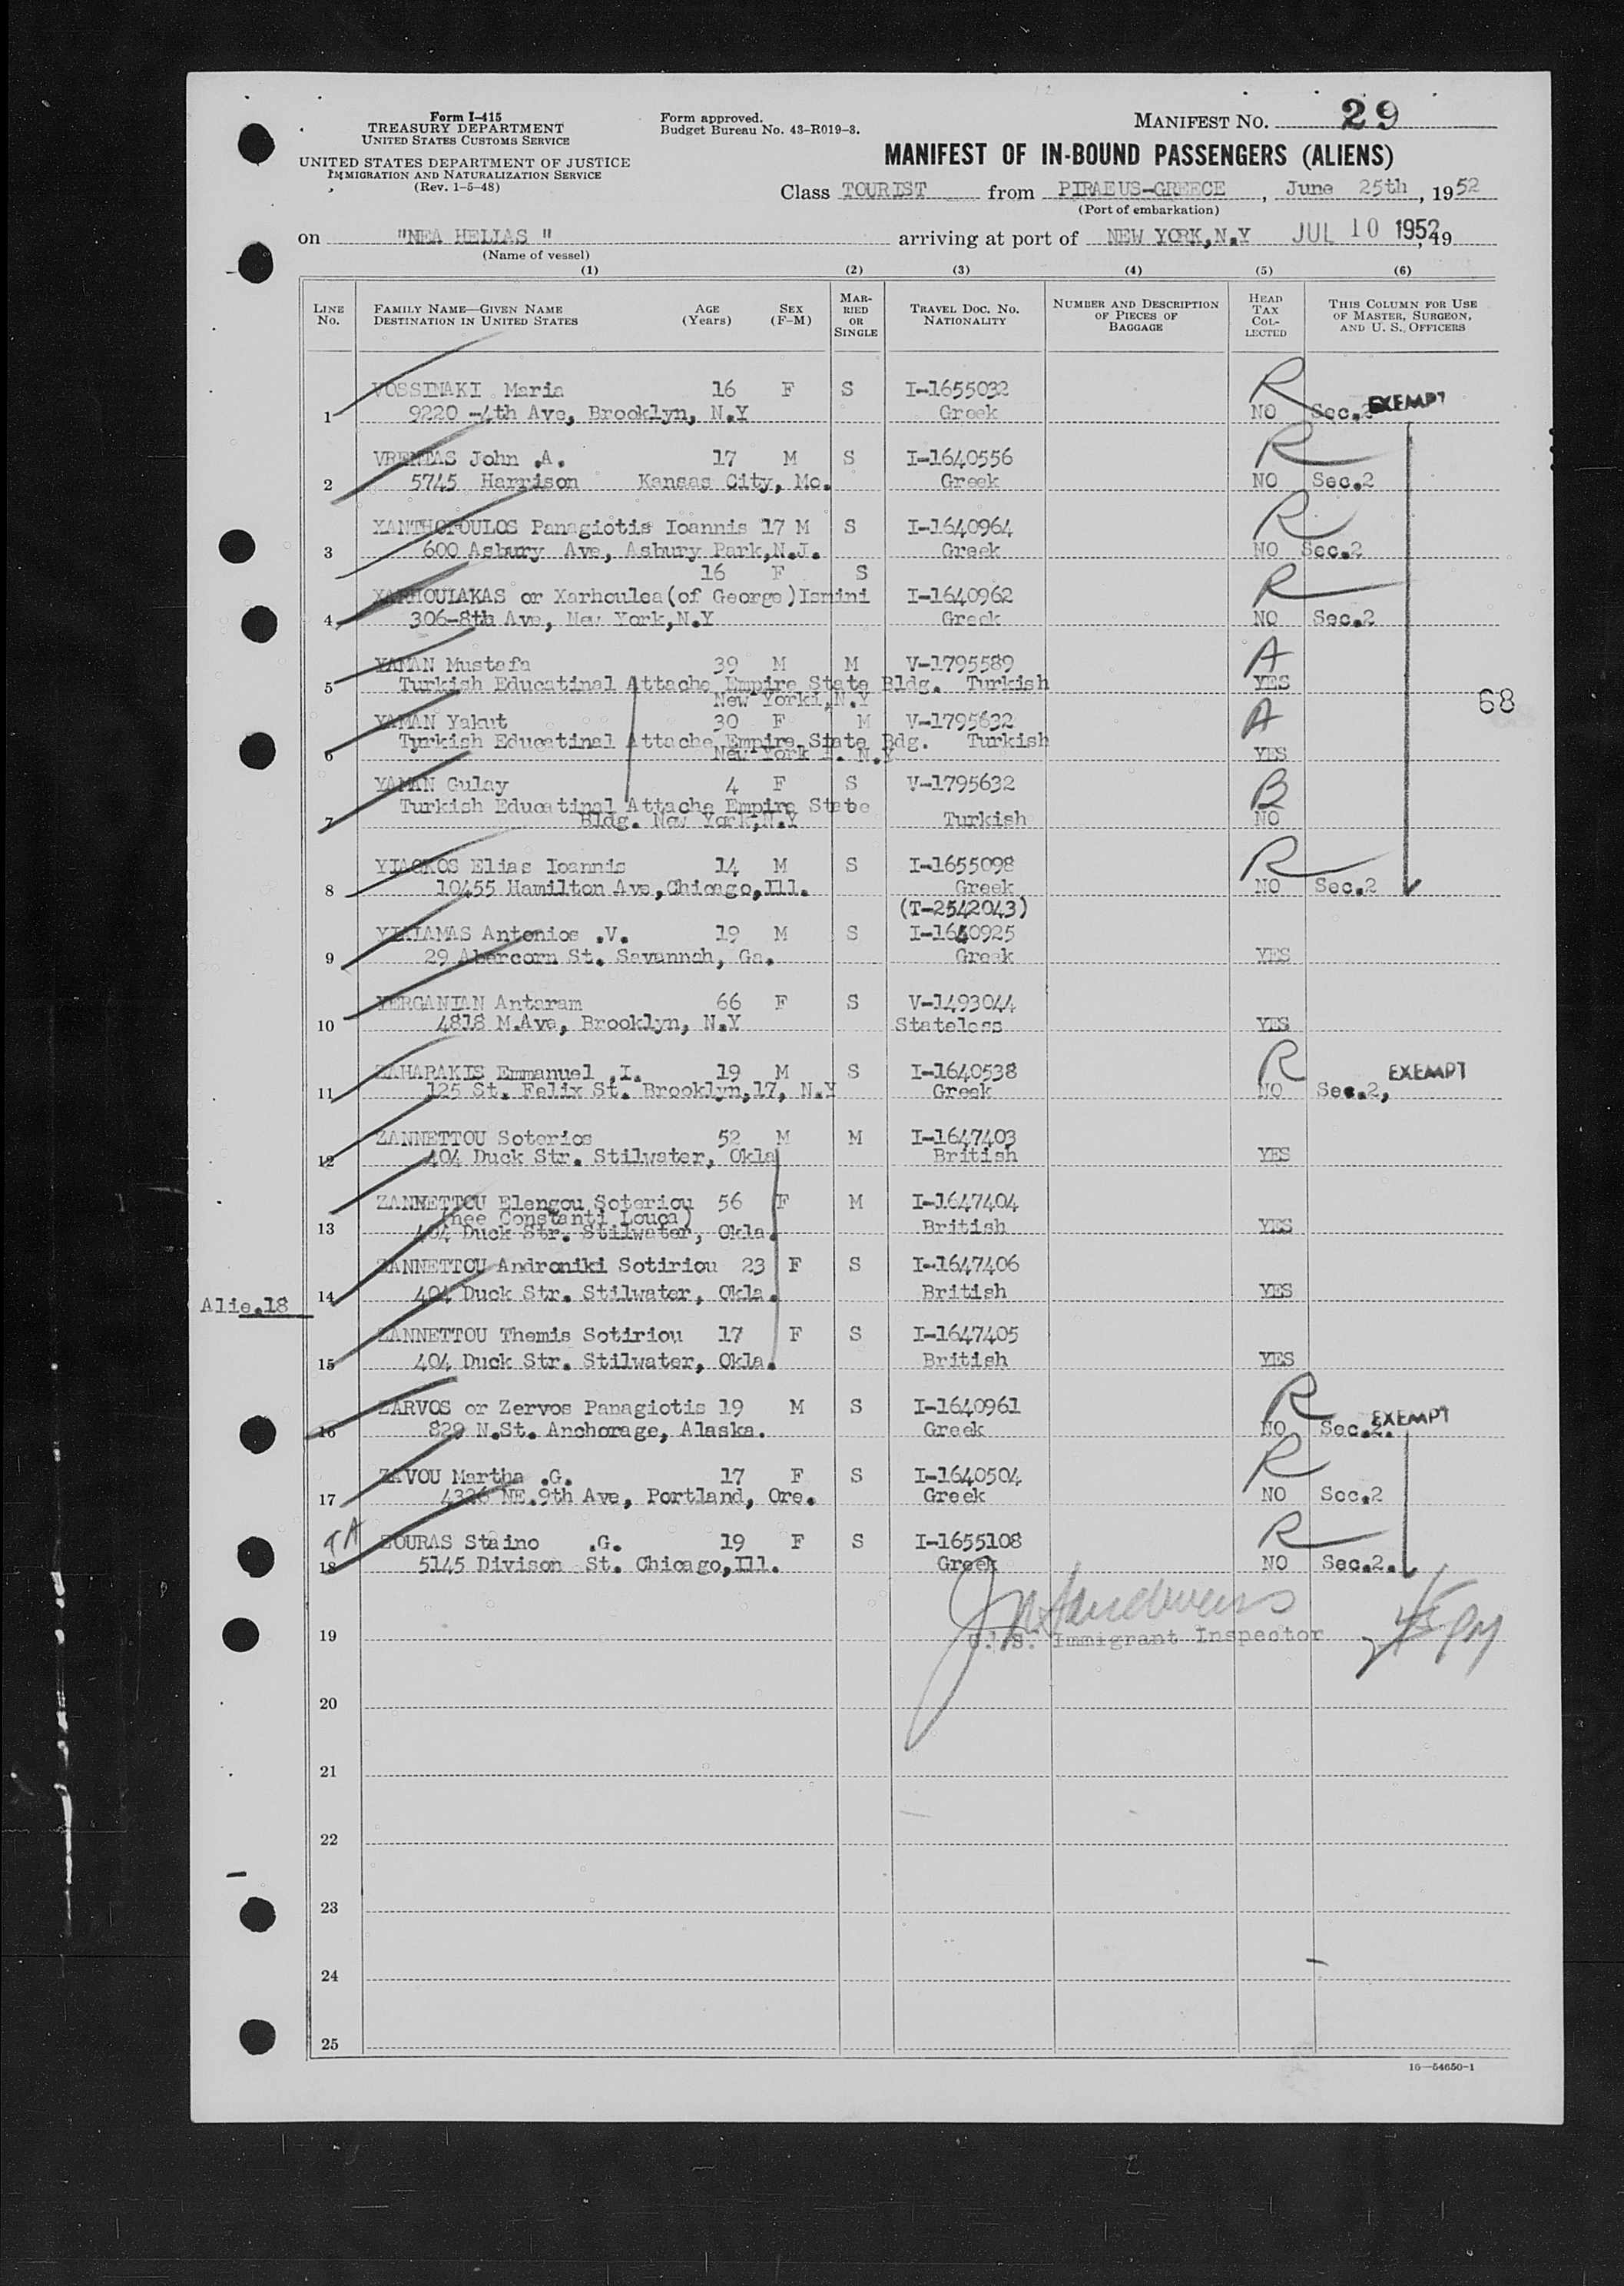 Form I-415
TREASURY DEPARTMENT
UNITED STATES CUSTOMS SERVICE
UNITED STATES DEPARTMENT OF JUSTICE
IMMIGRATION AND NATURALIZATION SERVICE
(Rev. 1-5-48)
Form approved.
Budget Bureau No. 43-R019-3.
MANIFEST NO. 29
MANIFEST OF IN-BOUND PASSENGERS (ALIENS)
Class TOURIST from PIRAEUS-GREECE, June 25th, 1952
(Port of embarkation)
on "NEA HELLAS " arriving at port of NEW YORK,N.Y JUL 10 1952, 19
(Name of vessel)
(1) (2) (3) (4) (5) (6)
LINE NO. FAMILY NAME—GIVEN NAME DESTINATION IN UNITED STATES AGE (Years) SEX (F-M) MARRIED OR SINGLE TRAVEL DOC. NO. NATIONALITY NUMBER AND DESCRIPTION OF PIECES OF BAGGAGE HEAD TAX COLLECTED THIS COLUMN FOR USE OF MASTER, SURGEON, AND U. S. OFFICERS
VOSSINAKI Maria 16 F S I-1655032 R EXEMPT
1 9220 -4th Ave, Brooklyn, N.Y Greek NO Sec.2
VRENTAS John .A. 17 M S I-1640556 R
2 5745 Harrison Kansas City, Mo. Greek NO Sec.2
XANTHOPOULOS Panagiotis Ioannis 17 M S I-1640964 R
3 600 Asbury Ave, Asbury Park,N.J. Greek NO Sec.2
16 F S
XARHOULAKAS or Xarhoulea(of George)Ismini I-1640962 R
4 306-8th Ave, New York,N.Y Greek NO Sec.2
YAMAN Mustafa 39 M M V-1795589 A
5 Turkish Educatinal Attache Empire State Bldg. Turkish YES
New Yorki,N.Y
68
YAMAN Yakut 30 F M V-1795632 A
Turkish Educatinal Attache Empire State Bdg. Turkish
6 New York N. N.Y YES
YAMAN Gulay 4 F S V-1795632 B
Turkish Educatinal Attache Empire State
7 Bldg. New York,N.Y Turkish NO
YIAGKOS Elias Ioannis 14 M S I-1655098 R
8 10455 Hamilton Ave,Chicago,Ill. Greek NO Sec.2
(T-2542043)
YIALAMAS Antonios .V. 19 M S I-1640925
9 29 Abercorn St. Savannah, Ga. Greek YES
YERGANIAN Antaram 66 F S V-1493044
10 4818 M.Ave, Brooklyn, N.Y Stateless YES
ZAHARAKIS Emmanuel .I. 19 M S I-1640538 R EXEMPT
11 125 St. Felix St. Brooklyn,17, N.Y Greek NO Sec.2,
ZANNETTOU Soterios 52 M M I-1647403
12 404 Duck Str. Stilwater, Okla British YES
ZANNETTOU Elengou Soteriou 56 F M I-1647404
(nee Constanti Louca)
13 404 Duck Str. Stilwater, Okla. British YES
ZANNETTOU Androniki Sotiriou 23 F S I-1647406
14 404 Duck Str. Stilwater, Okla. British YES
Alie.18
ZANNETTOU Themis Sotiriou 17 F S I-1647405
15 404 Duck Str. Stilwater, Okla. British YES
ZARVOS or Zervos Panagiotis 19 M S I-1640961 R EXEMPT
16 829 N.St. Anchorage, Alaska. Greek NO Sec.2.
ZAVOU Martha .G. 17 F S I-1640504 R
17 4326 NE.9th Ave, Portland, Ore. Greek NO Sec.2
ZOURAS Staino .G. 19 F S I-1655108 R
18 5145 Divison St. Chicago,Ill. Greek NO Sec.2.
19 U.S. Immigrant Inspector
20
21
22
23
24
25
16—54650-1